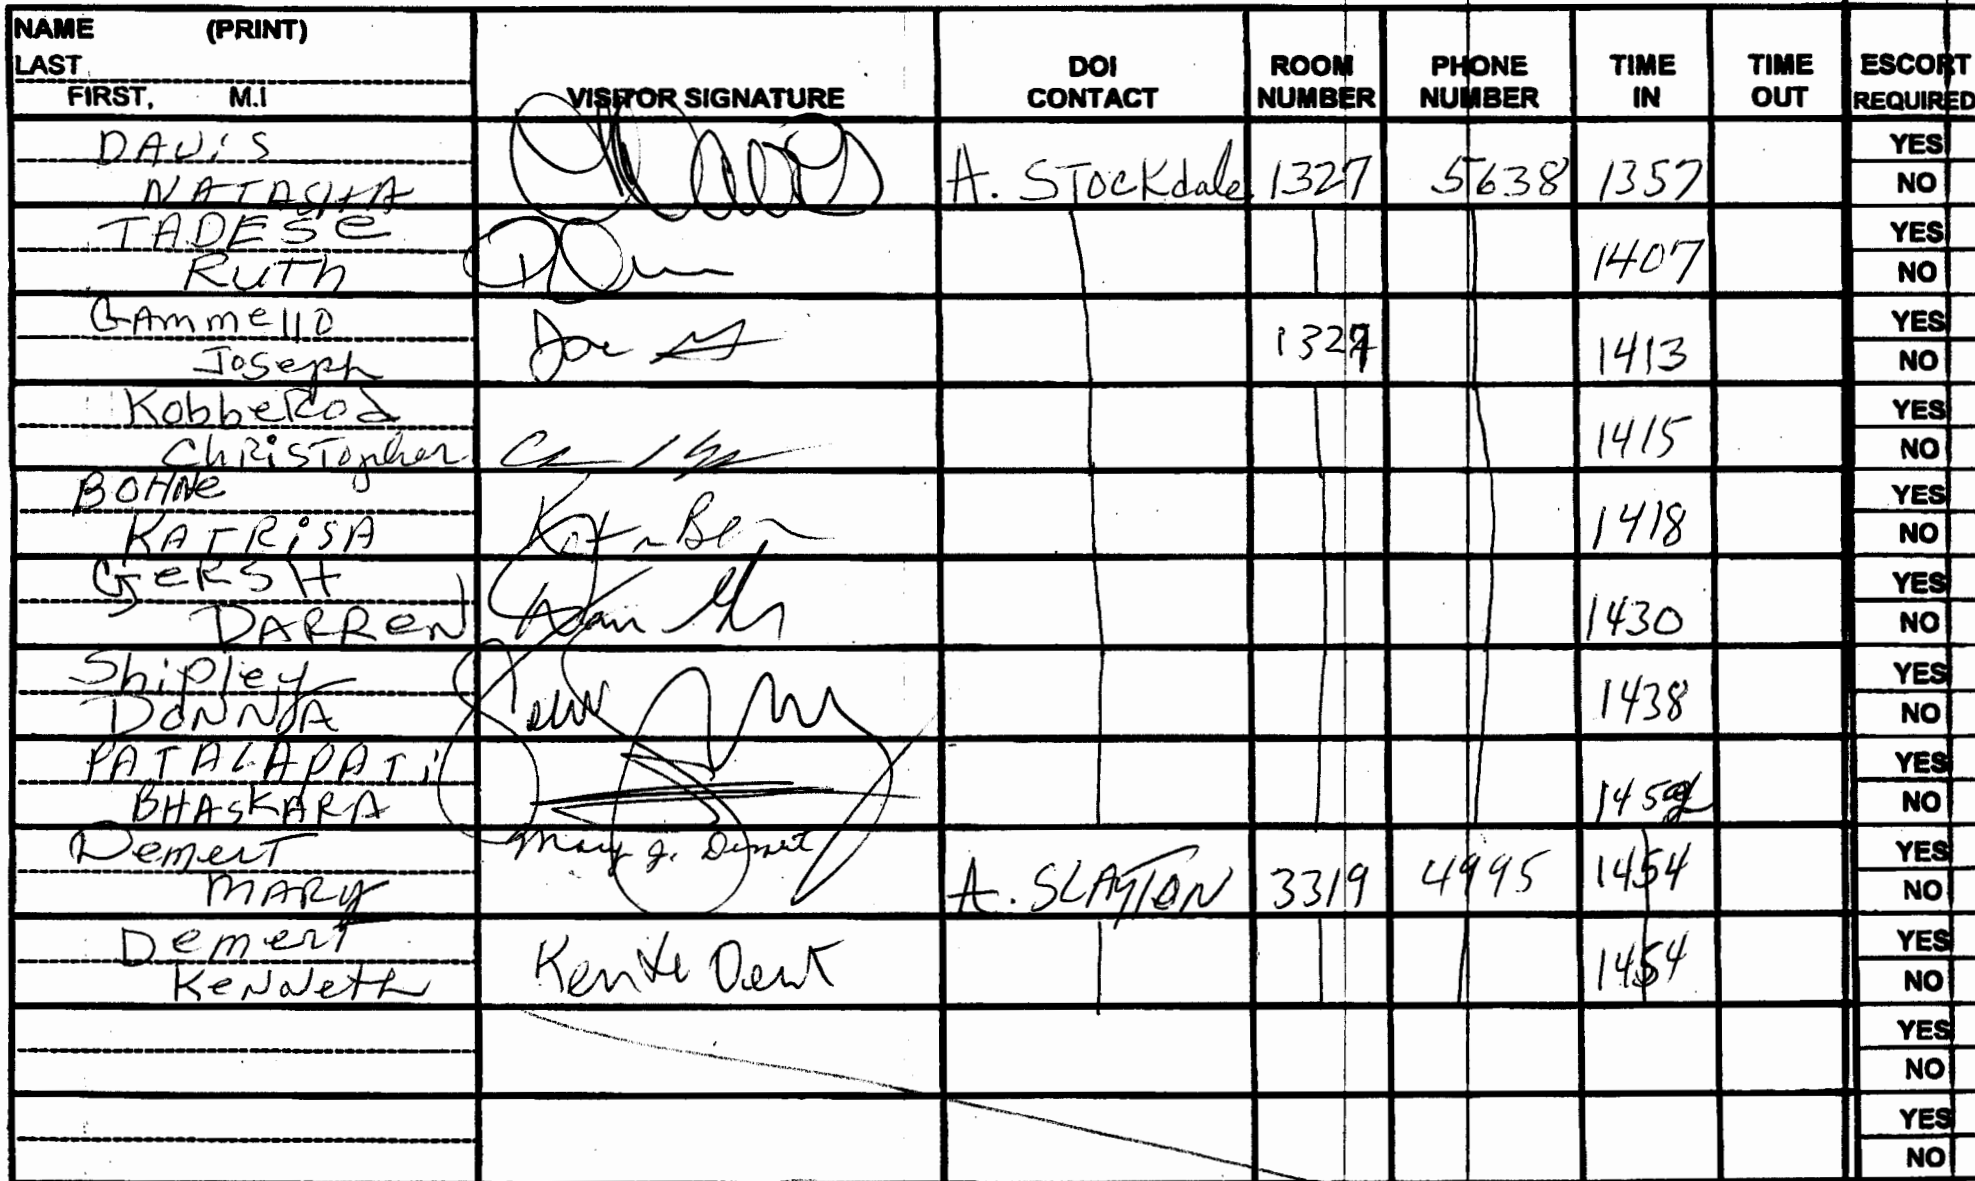 NAME (PRINT)
LAST
FIRST, M.I
VISITOR SIGNATURE
DOI CONTACT
ROOM NUMBER
PHONE NUMBER
TIME IN
TIME OUT
ESCORT REQUIRED
DAViS
NATASHA
A. STOCKdale 1327 5638 1357
YES
NO
TADESe
RuTh
1407
YES
NO
GAmmello
Joseph
Joe
1327
1413
YES
NO
KobbeRod
ChRiSTopher
1415
YES
NO
BOHNe
KATRiSA
1418
YES
NO
GeRSH
DARReN
1430
YES
NO
Shipley
DoNNA
1438
YES
NO
PATALAPATi
BHASKARA
YES
NO
DemerT
MARy
Mary J. Demert
A. SLAyToN 3319 4995 1454
YES
NO
Demert
KeNNeth
1454
YES
NO
YES
NO
YES
NO